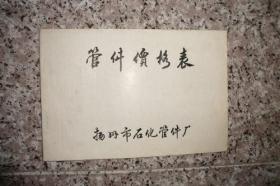 管件價格表
扬州市石化管件厂